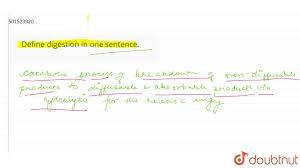 501523920
Define digestion in one sentence.
catabolic process of breakdown of non-diffusible
products to diffusable & absorbable products via
hydrolysis for the release energy
doubtnut